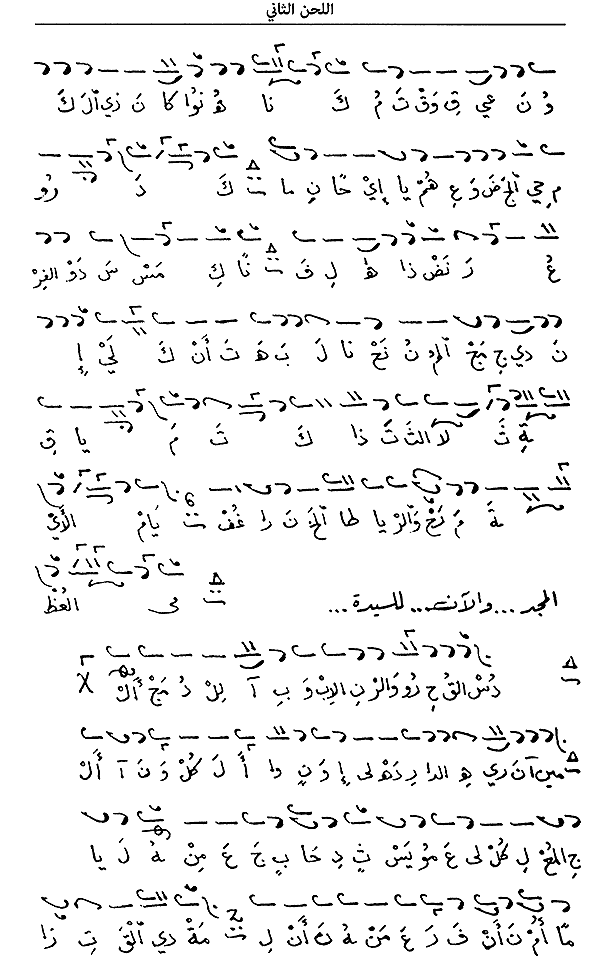 اللحن الثاني
وُ نَ عي قِ وَقْ تَ مُ كَ نا هُ نُوا كا نَ ذي اَلَ كَ
مِ حي اَلْجَ ضَ وَ عِ هُمْ يا إِيْ خًا نِ ما تَ كَ دَ رُو
عُ رَ نَضْ ذا هٰ لِ فَ تَ نًا كِ مَسْ سَ دَوْ الفِرْ
نَ دي جِ مَجْ اَلْمُ نُ نَحْ نا لَ بَ هَ تَ أَنْ كَ لَيْ إِ
ةِ ثَ لاَ الثَ ثَ ذا كَ تَ مَ يا قِ
ةَ مَ رَحْ وَالرْ يا طا اَلْخَ نَ را غُفْ تَ يَامْ الأَيْ
المجد ... والآن... للسيدة ... مى العُظْ
دُسْ القُ حِ رُو وَالرْ نِ الاِبْ وَ بِ آ لِلْ دُ مَجْ أَلْ
مين آ نَ ري هِ الدا رِ دَهْ لى إِ وَ نٍ وا أَ لَ كُلْ وَ نَ آ أَلْ
جِ المُعْ لِ كُلْ لى عَ مُو يَسْ ثٍ دِ حَا بٍ جَ عَ مِنْ هُ لَ يا
مّا أُمْ نَ أَنْ فَ رَ عَ مَنْ هُ نَ أَنْ لِ تَ مَةْ دي اَلْقَ تِ ذا